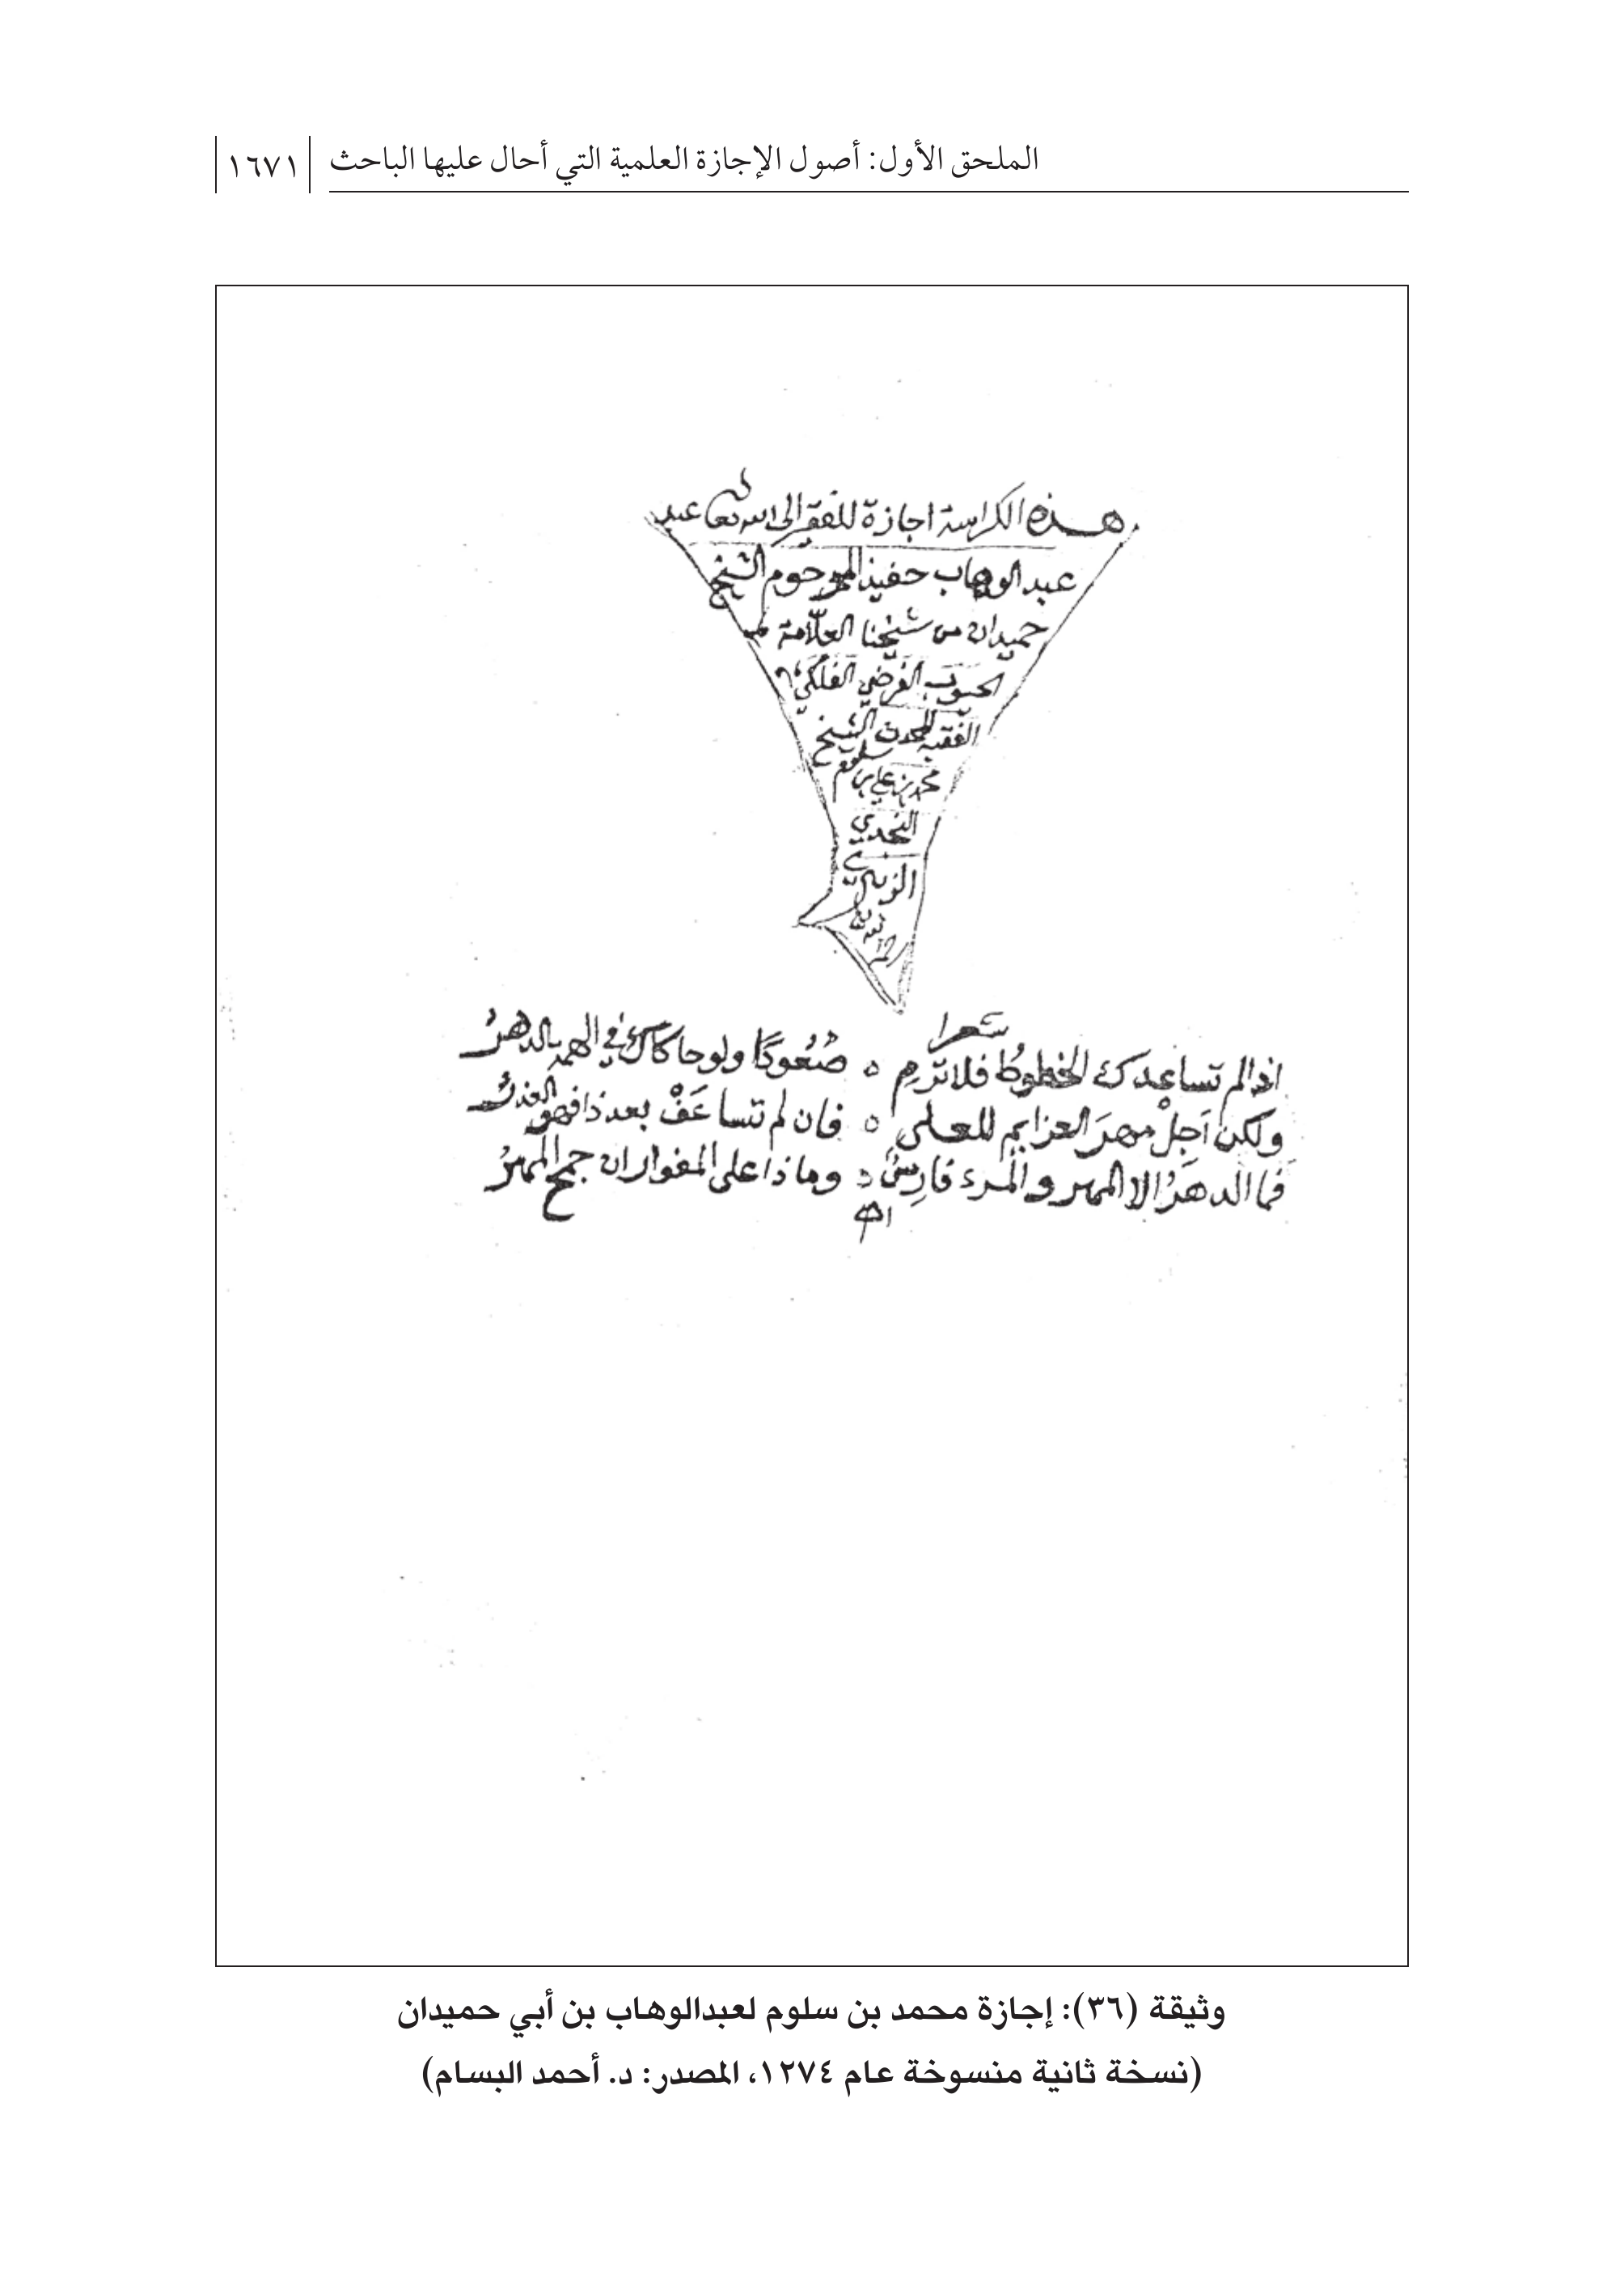 الملحق الأول: أصول الإجازة العلمية التي أحال عليها الباحث
١٦٧١
هذه الكراسة اجازة للفقير الى الله تعالى عبد
عبد الوهاب حفيذ المرحوم الشيخ
حميدان من شيخنا العلّامة
الحيسوب الفرضي الفلكي
الفقيه المحدث الشيخ
محمد بن علي بن سلوم
النجدي
الزبيري
شعرا
اذا لم تساعدك الحظوظ فلا ترم ٥ صُعُودًا ولو حاكاك في الهمه الدهرُ
ولكن اَجِلْ مهرَ العزايم للعلى ٥ فان لم تساعَفْ بعد ذا فهو العذرُ
فما الدهرُ الا المهر والمرء فارسٌ وما ذا على المغوار ان جمح المهرُ
اهـ
وثيقة (٣٦): إجازة محمد بن سلوم لعبدالوهاب بن أبي حميدان
(نسخة ثانية منسوخة عام ١٢٧٤، المصدر: د. أحمد البسام)